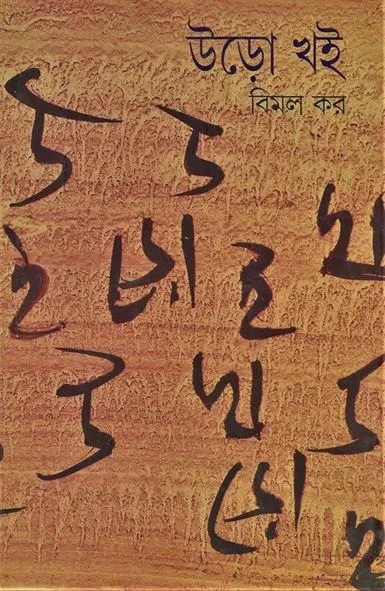 উড়ো খই
বিমল কর
উ উ খ
ই ড়ো ই
উ খ উ
ড়ো ই